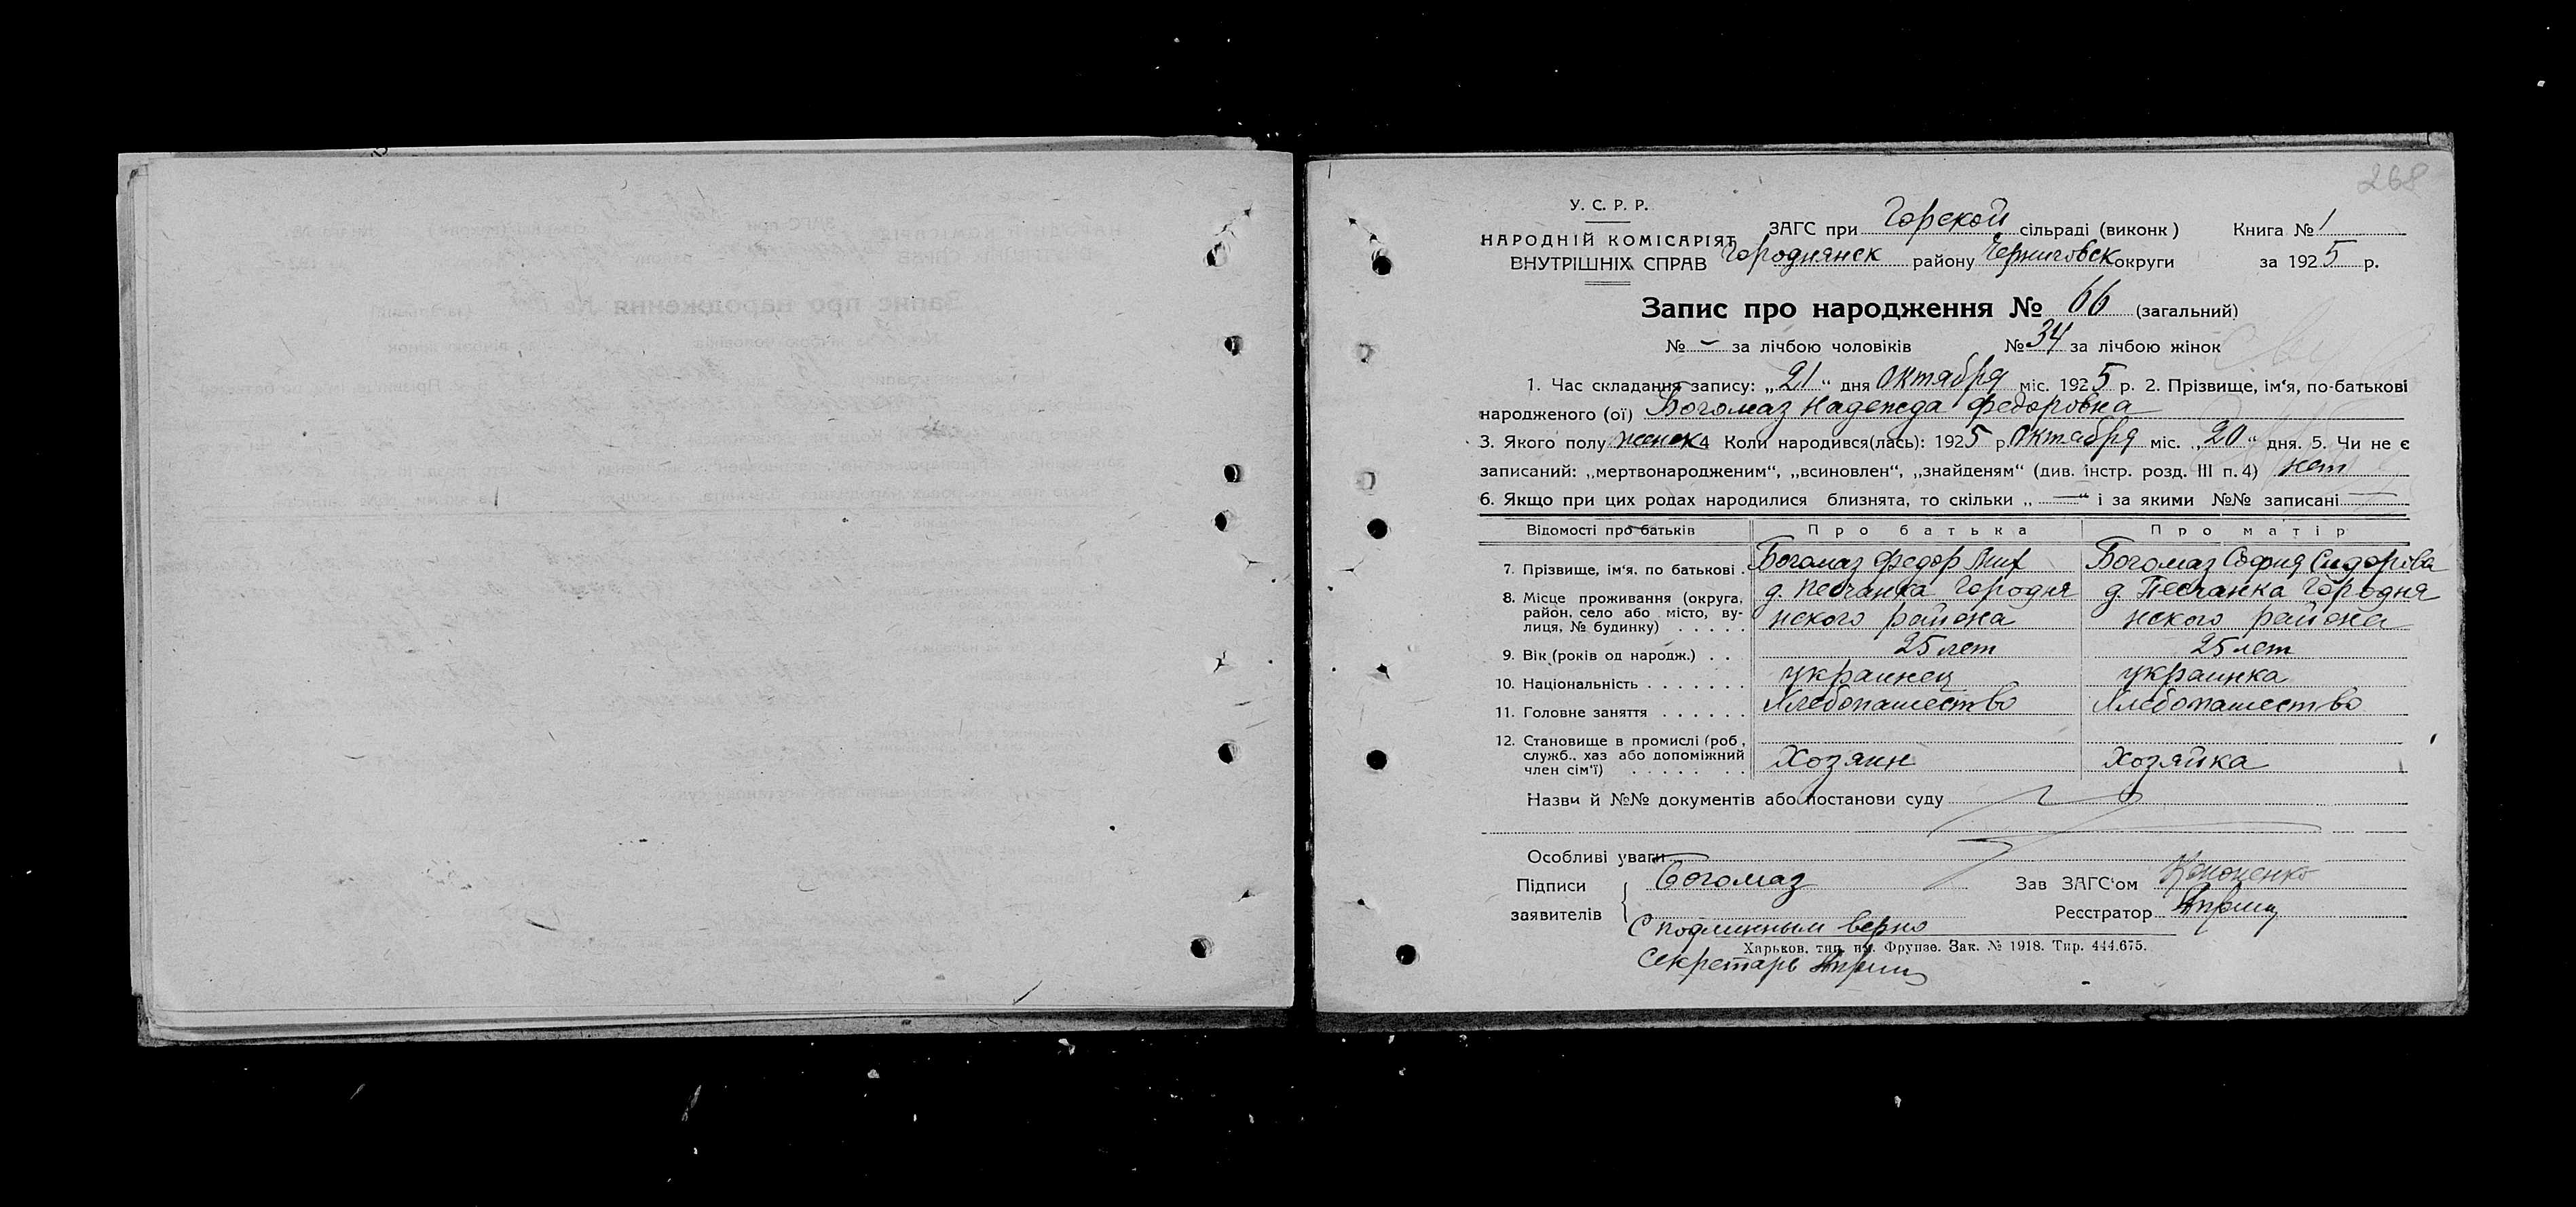 268
У. С. Р. Р.
НАРОДНІЙ КОМІСАРІЯТ
ВНУТРІШНІХ СПРАВ
ЗАГС при Горской сільраді (виконк) Книга № 1
Городнянск району Черниговск округи за 1925 р.
Запис про народження № 66 (загальний)
№ – за лічбою чоловіків № 34 за лічбою жінок
1. Час складання запису: „21“ дня октября міс. 1925 р. 2. Прізвище, ім‘я, по-батькові
народженого (ої) Богомаз Надежда Федоровна
3. Якого полу женск 4 Коли народився(лась): 1925 р. октября міс. „20“ дня. 5. Чи не є
записаний: „мертвонародженим“, „всиновлен“, „знайденям“ (див. інстр. розд. III п. 4) нет
6. Якщо при цих родах народилися близнята, то скільки „—“ і за якими №№ записані —
Відомості про батьків Про батька Про матір
7. Прізвище, ім‘я. по батькові . Богомаз Федор Мих Богомаз София Сидорова
8. Місце проживання (округа, район, село або місто, вулиця, № будинку) . . . . . д. Песчанка Городня д. Песчанка Городня
нского района нского района
9. Вік (років од народж.) . . 25 лет 25 лет
10. Національність . . . . . . . украинец украинка
11. Головне заняття . . . . . . Хлебопашество Хлебопашество
12. Становище в промислі (роб, служб., хаз або допоміжний член сім‘ї) . . . . . . . Хозяин Хозяйка
Назви й №№ документів або постанови суду
Особливі уваги
Підписи заявителів Богомаз Зав ЗАГС‘ом Кононенко
Реєстратор
С подлинным верно
Харьков, тип. им. Фрунзе. Зак. № 1918. Тир. 444.675.
Секретарь